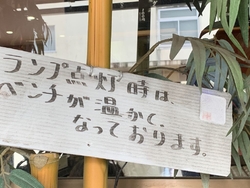 ランプ点灯時は、
ベンチが温かく
なっております。